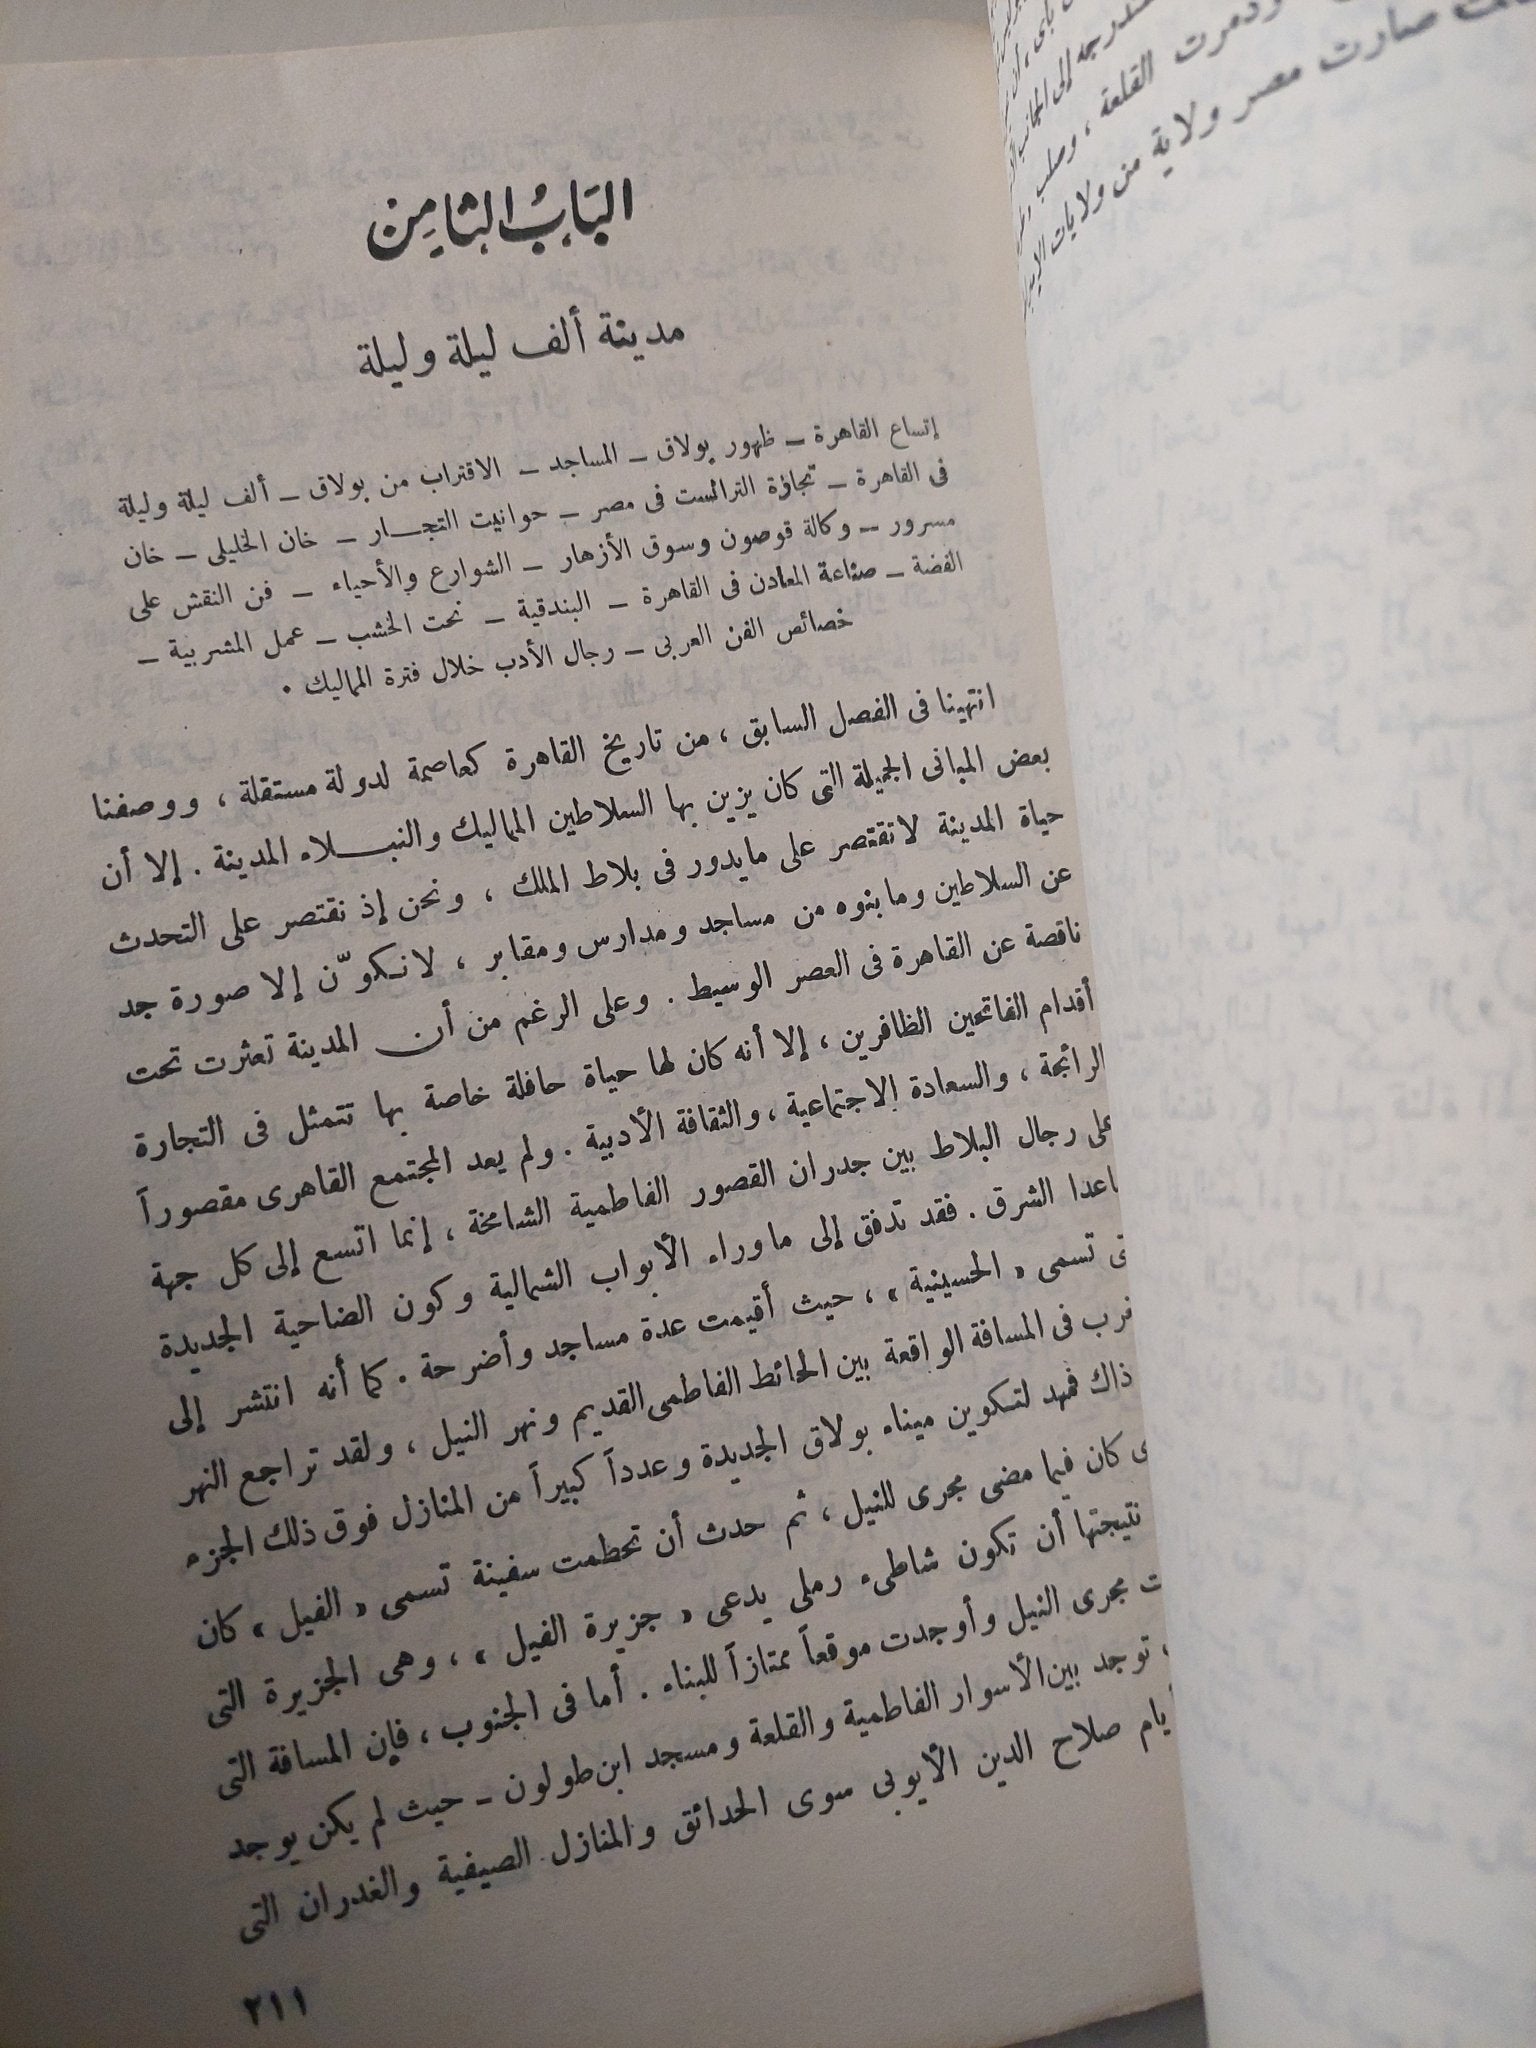 الباب الثامن
مدينة ألف ليلة وليلة
إتساع القاهرة ــ ظهور بولاق ــ المساجد ــ الاقتراب من بولاق ــ ألف ليلة وليلة
فى القاهرة ــ تجارة الترانست فى مصر ــ حوانيت التجـــار ــ خان الخليلى ــ خان
مسرور ــ وكالة قوصون وسوق الأزهار ــ الشوارع والأحياء ــ فن النقش على
الفضة ــ صناعة المعادن فى القاهرة ــ البندقية ــ نحت الخشب ــ عمل المشربية ــ
خصائص الفن العربى ــ رجال الأدب خلال فترة المماليك .
انتهينا فى الفصل السابق ، من تاريخ القاهرة كعاصمة لدولة مستقلة ، ووصفنا
بعض المبانى الجميلة التى كان يزين بها السلاطين المماليك والنبـــلاء المدينة . إلا أن
حياة المدينة لا تقتصر على ما يدور فى بلاط الملك ، ونحن إذ نقتصر على التحدث
عن السلاطين وما بنوه من مساجد ومدارس ومقابر ، لا نكوّن إلا صورة جد
ناقصة عن القاهرة فى العصر الوسيط . وعلى الرغم من أن المدينة تعثرت تحت
أقدام الفاتحين الظافرين ، إلا أنه كان لها حياة حافلة خاصة بها تتمثل فى التجارة
الرائجة ، والسعادة الاجتماعية ، والثقافة الأدبية . ولم يعد المجتمع القاهرى مقصوراً
على رجال البلاط بين جدران القصور الفاطمية الشامخة ، إنما اتسع إلى كل جهة
اعدا الشرق . فقد تدفق إلى ما وراء الأبواب الشمالية وكون الضاحية الجديدة
تى تسمى « الحسينية » ، حيث أقيمت عدة مساجد وأضرحة . كما أنه انتشر إلى
غرب فى المسافة الواقعة بين الحائط الفاطمى القديم ونهر النيل ، ولقد تراجع النهر
ذاك فمهد لتكوين ميناء بولاق الجديدة وعدداً كبيراً من المنازل فوق ذلك الجزء
ى كان فيما مضى مجرى للنيل ، ثم حدث أن تحطمت سفينة تسمى « الفيل » كان
نتيجتها أن تكون شاطىء رملى يدعى « جزيرة الفيل » ، وهى الجزيرة التى
ت مجرى النيل وأوجدت موقعاً ممتازاً للبناء . أما فى الجنوب ، فإن المسافة التى
توجد بين الأسوار الفاطمية والقلعة ومسجد ابن طولون ــ حيث لم يكن يوجد
يام صلاح الدين الأيوبى سوى الحدائق والمنازل الصيفية والغدران التى
٢١١
ودمرت القلعة ، وصلب
صارت مصر ولاية من ولايات